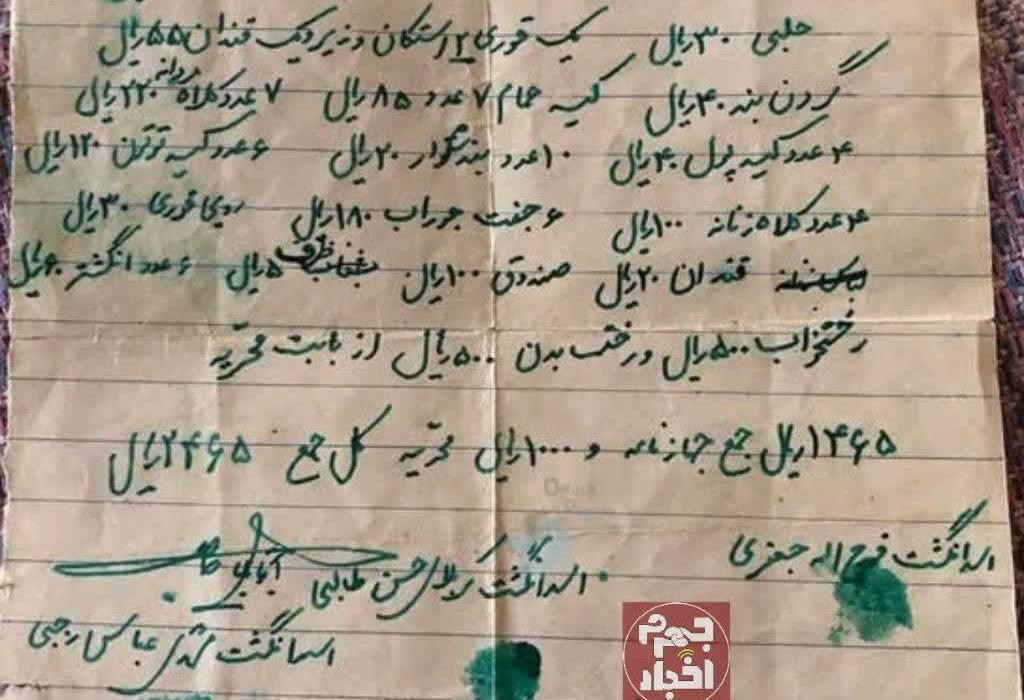 حلبی ۳۰ ریال یک قوری ۲ استکان و زیر و یک قندان ۵۵ ریال
گردن بند ۴۰ ریال کیسه حمام ۷ عدد ۸۵ ریال ۷ عدد کلاه مردانه ۲۲۰ ریال
۴ عدد کیسه پول ۴۰ ریال ۱۰ عدد بند شلوار ۲۰ ریال ۶ عدد کیسه توتون ۱۲۰ ریال
۴ عدد کلاه زنانه ۱۰۰ ریال ۶ جفت جوراب ۱۸۰ ریال روی قوری ۳۰ ریال
قندان ۲۰ ریال صندوق ۱۰۰ ریال ظرف ۵ ریال ۶ عدد انگشتر ۶۰ ریال
رختخواب ۵۰۰ ریال و رخت بدن ۵۰۰ ریال از بابت مهریه
۱۴۶۵ ریال جمع جهازنامه و ۱۰۰۰ ریال مهریه کل جمع ۲۴۶۵ ریال
اثر انگشت فرج اله جعفری
اثر انگشت کربلائی حسن طالبی
اثر انگشت مشدی عباس رجبی
جهرم
اخبار